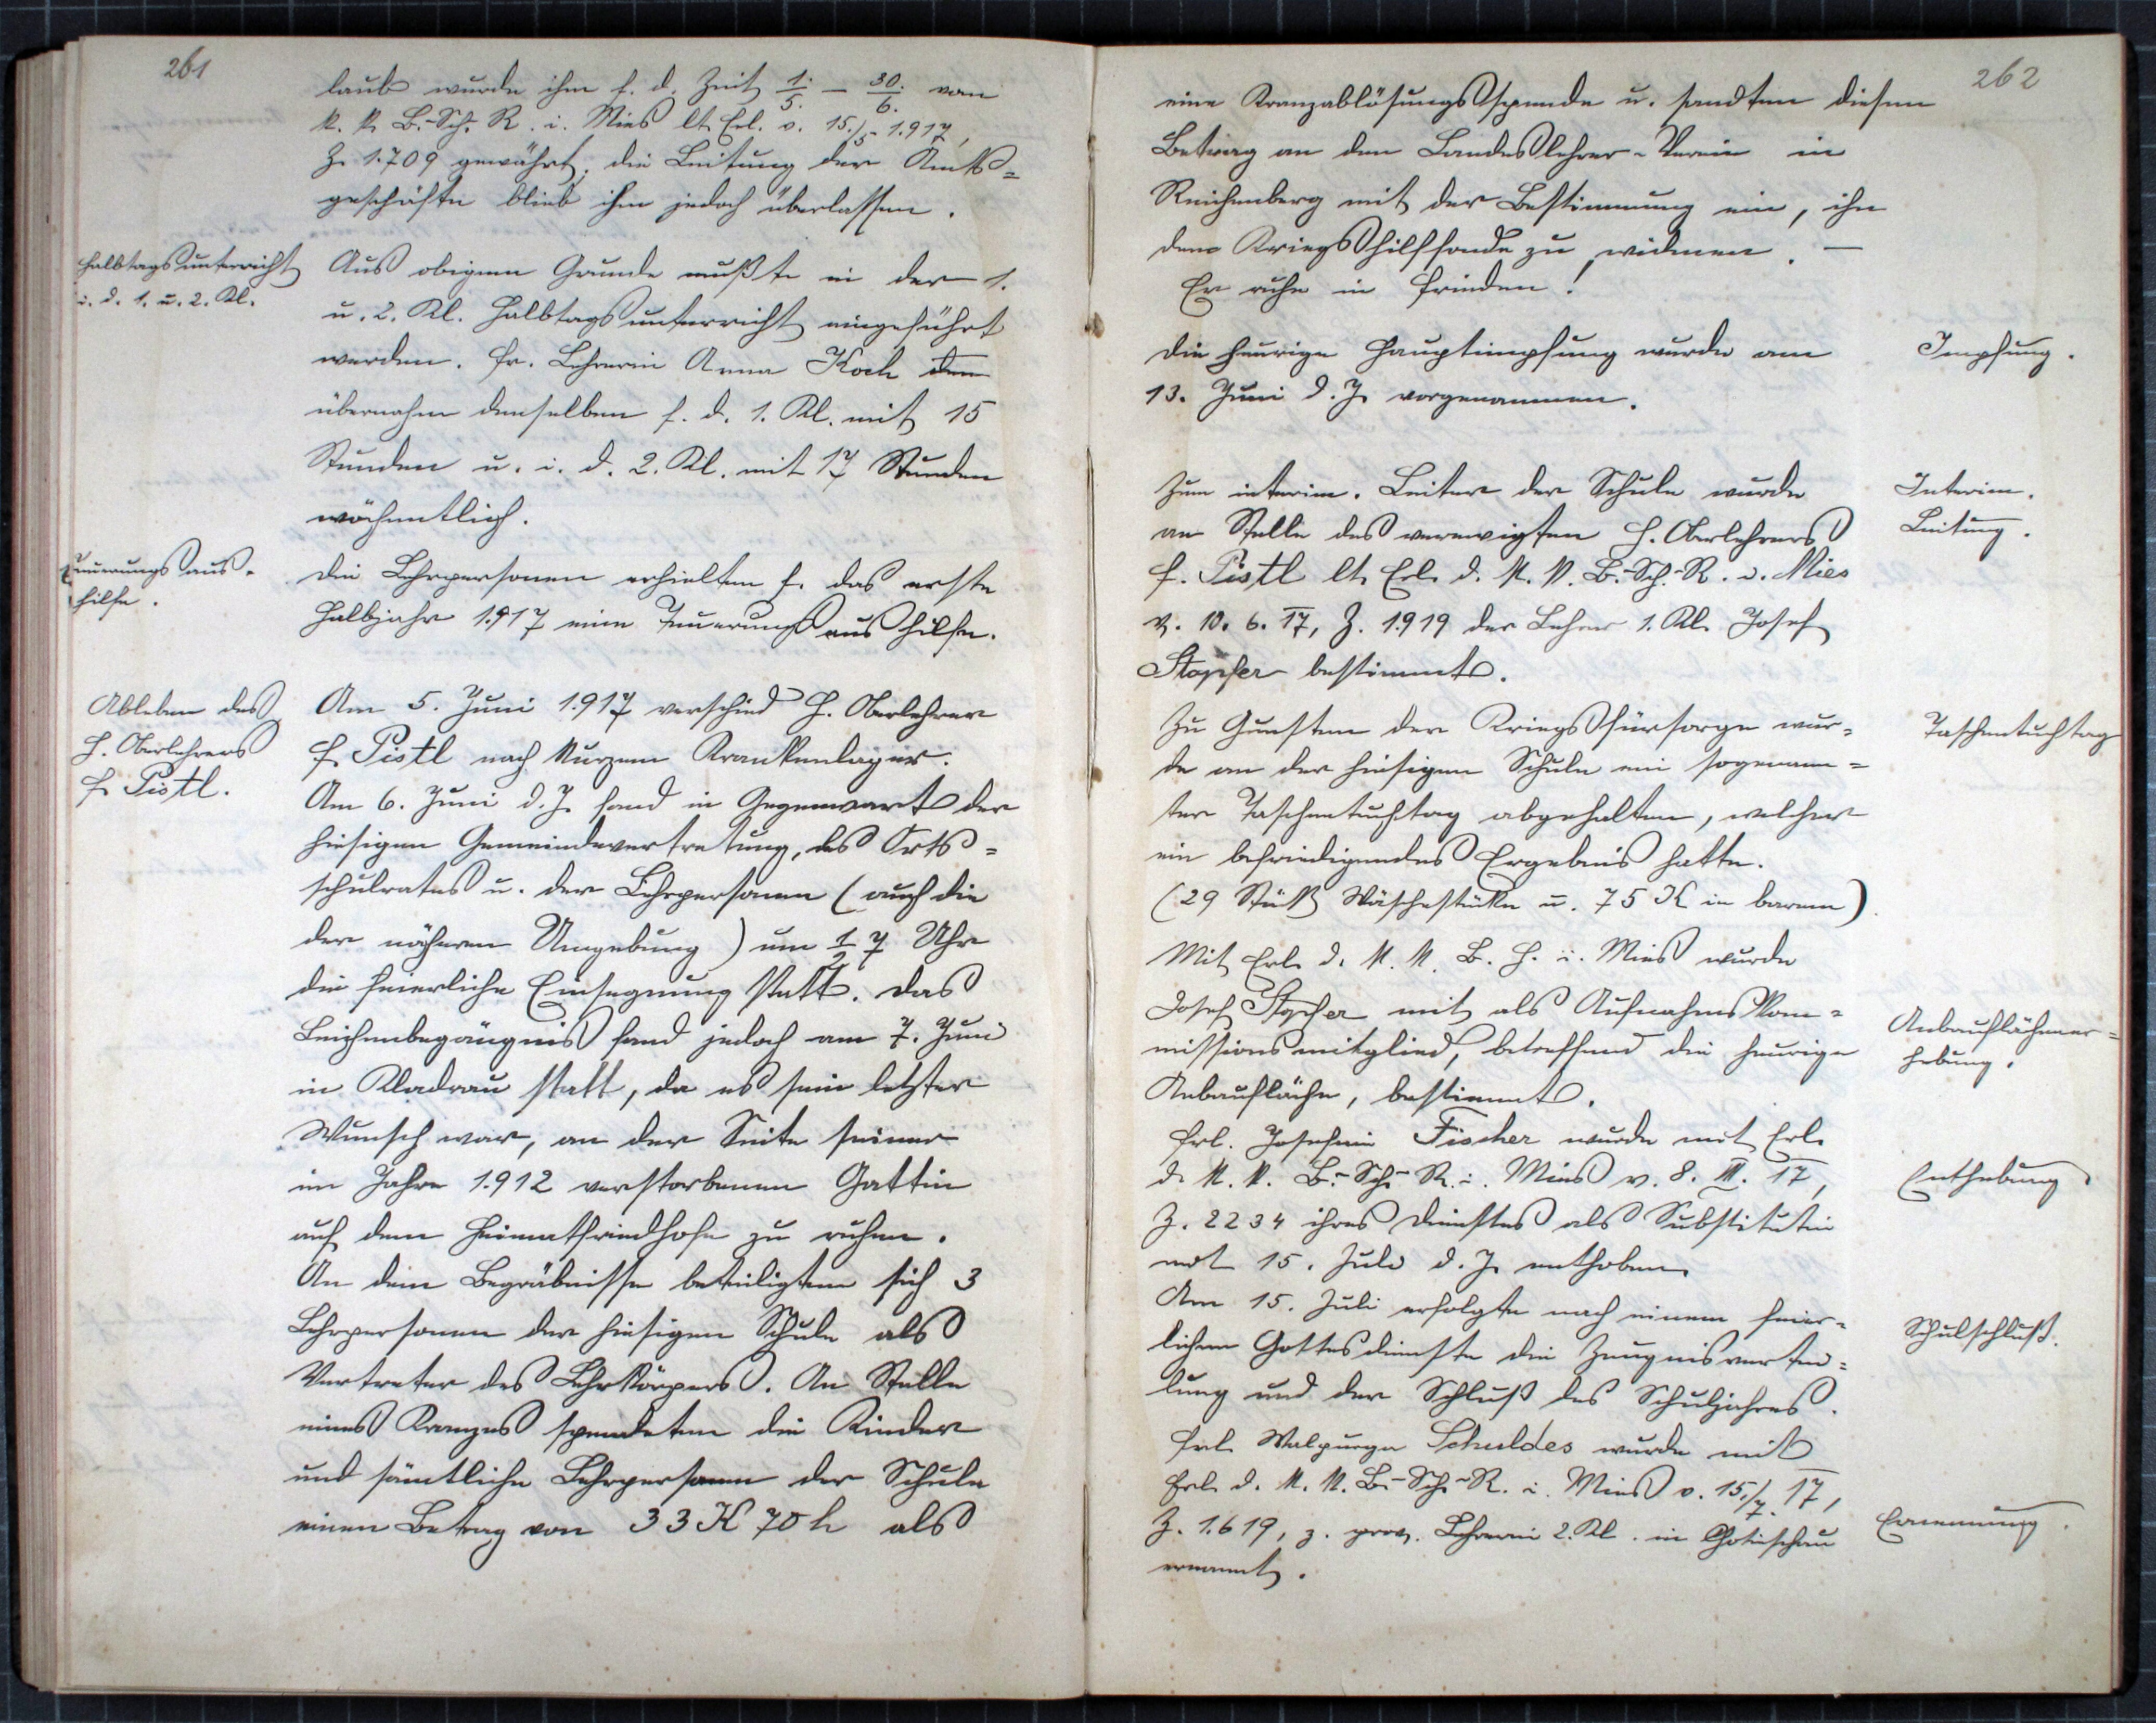 261
laub wurde ihm f. d. Zeit 1./5. – 30./6. vom
k. k. B.-Sch. R. i. Mies lt. Erl. v. 15./5. 1.917,
Z. 1.709 gewährt, die Leitung der Amts=
geschäfte blieb ihm jedoch überlassen.
Halbtagsunterricht
i. d. 1. u. 2. Kl.
Aus obigem Grunde mußte in der 1.
u. 2. Kl. Halbtagsunterricht eingeführt
werden. Fr. Lehrerin Anna Koch
übernahm denselben f. d. 1. Kl. mit 15
Stunden u. i. d. 2. Kl. mit 17 Stunden
wöchentlich.
Teuerungsaus-
hilfe.
Die Lehrpersonen erhielten f. das erste
Halbjahr 1.917 eine Teuerungsaushilfe.
Ableben des
H. Oberlehrers
F. Pistl.
Am 5. Juni 1.917 verschied H. Oberlehrer
F. Pistl nach kurzem Krankenlager.
Am 6. Juni d. J. fand in Gegenwart der
hiesigen Gemeindevertretung, des Orts=
schulrates u. der Lehrpersonen (auch die
der näheren Umgebung) um 1/2 7 Uhr
die feierliche Einsegnung statt. Das
Leichenbegängnis fand jedoch am 7. Juni
in Kladrau statt, da es sein letzter
Wunsch war, an der Seite seiner
im Jahre 1.912 verstorbenen Gattin
auf dem Heimatfriedhofe zu ruhen.
An dem Begräbnisse beteiligten sich 3
Lehrpersonen der hiesigen Schule als
Vertreter des Lehrkörpers. An Stelle
eines Kranzes spendeten die Kinder
und sämtliche Lehrpersonen der Schule
einen Betrag von 33 K 70 h als
262
eine Kranzablösungsspende u. sandten diesen
Betrag an den Landeslehrer-Verein in
Reichenberg mit der Bestimmung ein, ihn
dem Kriegshilffonde zu widmen. —
Er ruhe in Frieden!
Die heurige Hauptimpfung wurde am
13. Juni d. J. vorgenommen.
Impfung.
Zum interim. Leiter der Schule wurde
an Stelle des verewigten H. Oberlehrers
F. Pistl lt. Erl. d. k. k. B.-Sch.-R. i. Mies
v. 10. 6. 17, Z. 1.919 der Lehrer 1. Kl. Josef
Stopfer bestimmt.
Interim.
Leitung.
Zu Gunsten der Kriegsfürsorge wur=
de an der hiesigen Schule ein sogenann=
ter Taschentuchtag abgehalten, welcher
ein befriedigendes Ergebnis hatte.
(29 Stück Wäschestücke u. 75 K in barem).
Taschentuchtag
Mit Erl. d. k. k. B. H. i. Mies wurde
Josef Stopfer mit als Aufnahmskom=
missionsmitglied, betreffend die heurige
Anbaufläche, bestimmt.
Anbauflächener=
hebung.
Frl. Josefine Fischer wurde mit Erl.
d. k. k. B.-Sch.-R. i. Mies v. 8. . 17,
Z. 2234 ihres Dienstes als Substitutin
mit 15. Juli d. J. enthoben.
Enthebung
Am 15. Juli erfolgte nach einem feier-
lichen Gottesdienste die Zeugnisvertei=
lung und der Schluß des Schuljahres.
Schulschluß.
Frl. Walpurga Schuldes wurde mit
Erl. d. k. k. B.-Sch.-R. i. Mies v. 15./7. 17,
Z. 1.619, z. prov. Lehrerin 2. Kl. in Chotieschau
ernannt.
Ernennung.